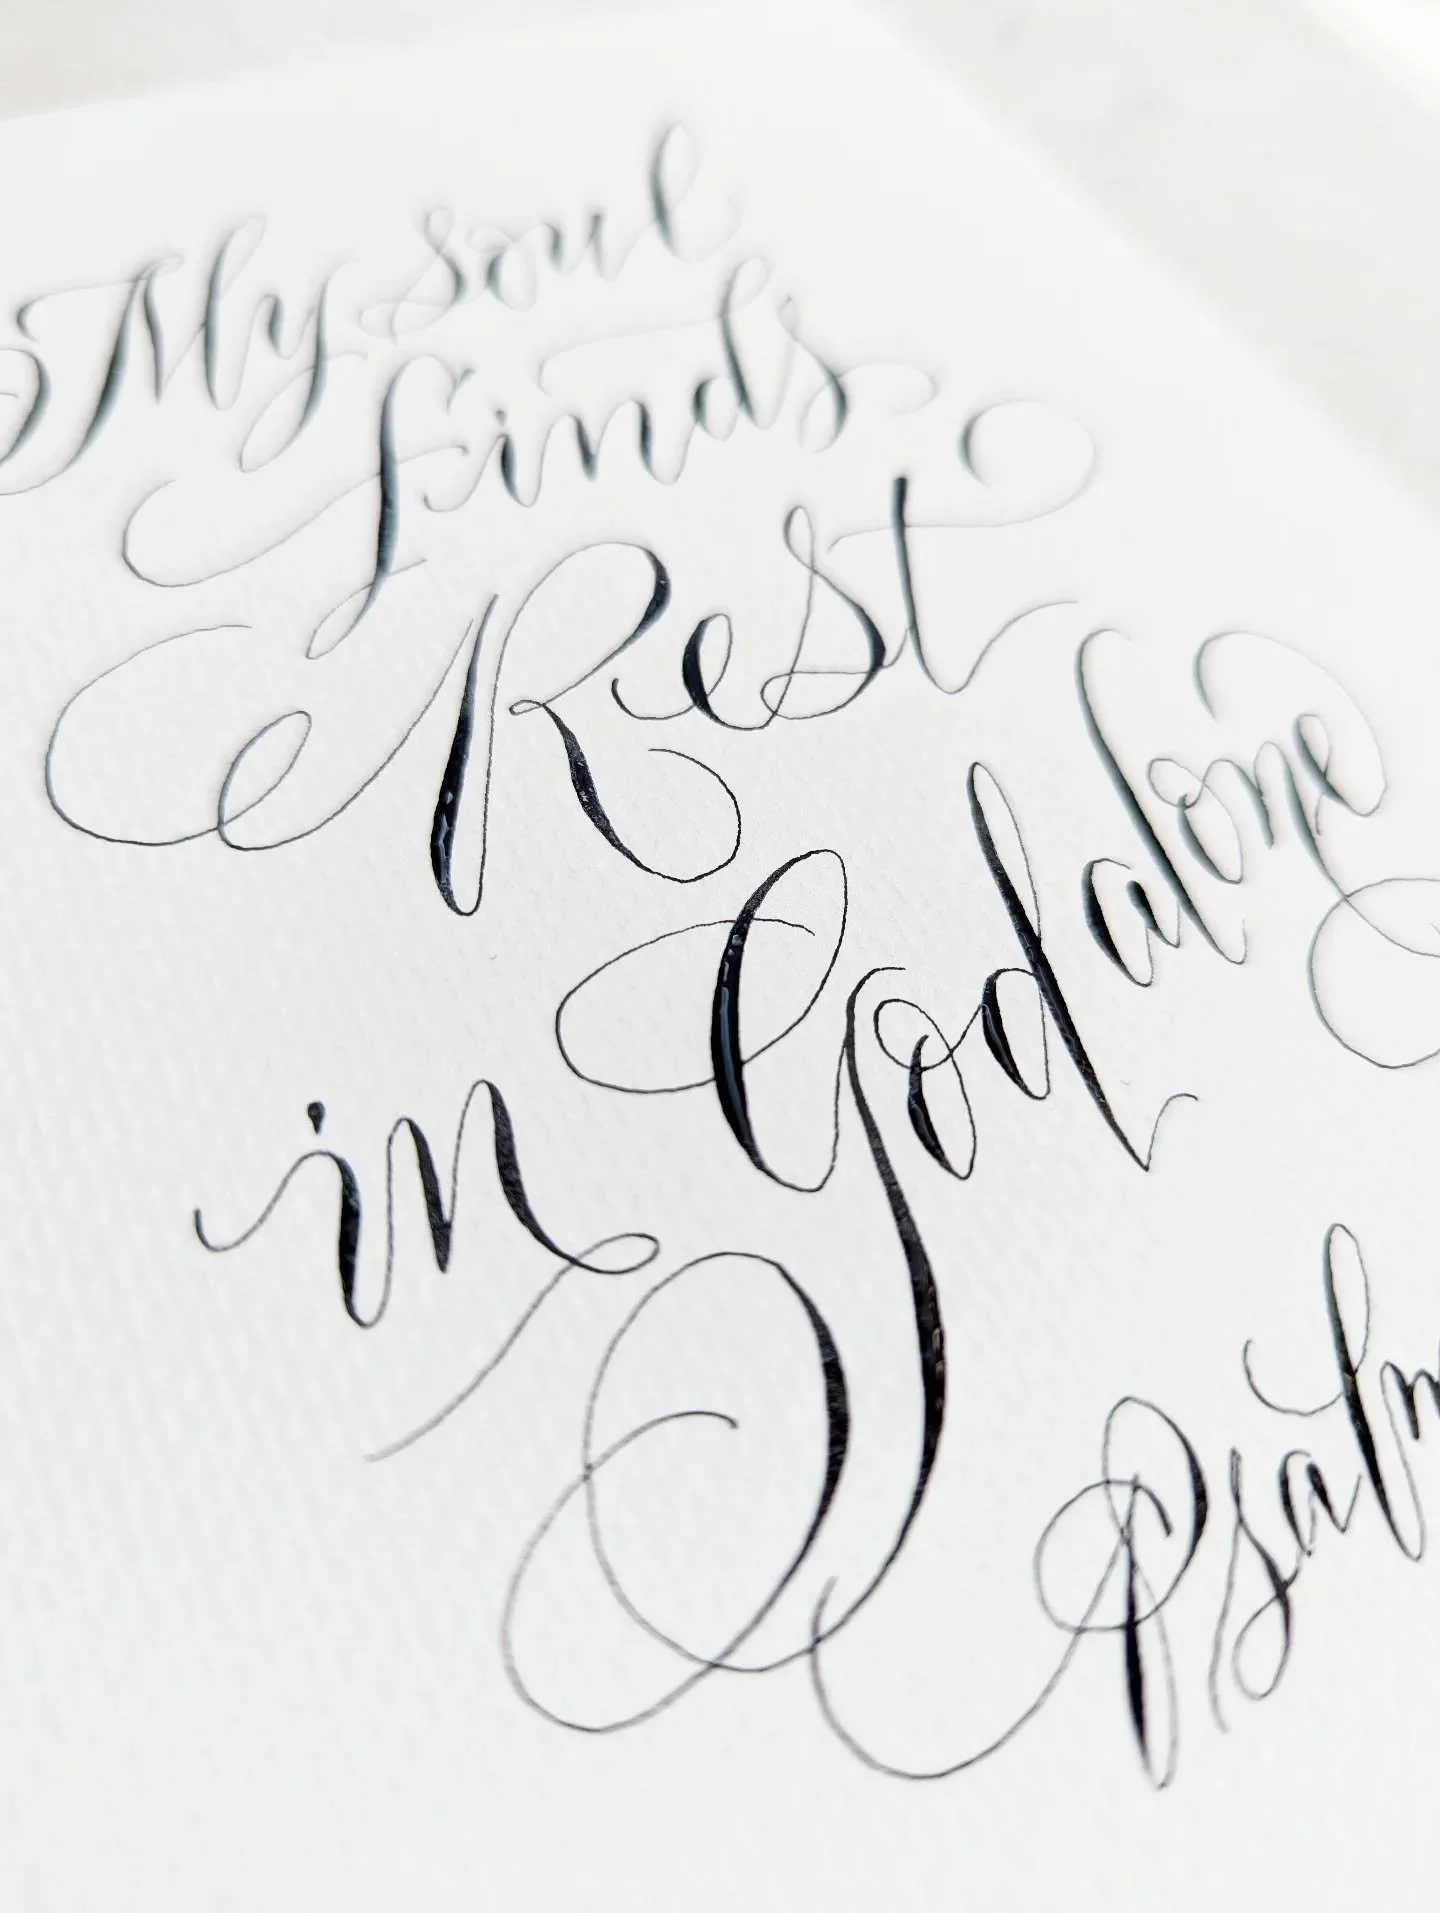 My soul
finds
Rest
in God alone
Psalm